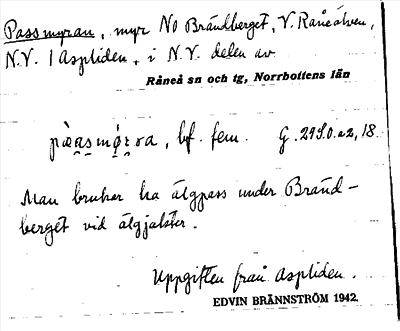 Passmyran, myr NO Brändberget, V. Råneälven,
N.V. i Aspliden, i N.V. delen av
Råneå sn och tg, Norrbottens län
bf. fem. G. 29S.O. a2, 18.
Man brukar ha älgpass under Bränd-
berget vid älgjakter.
Uppgiften från Aspliden.
EDVIN BRÄNNSTRÖM 1942.